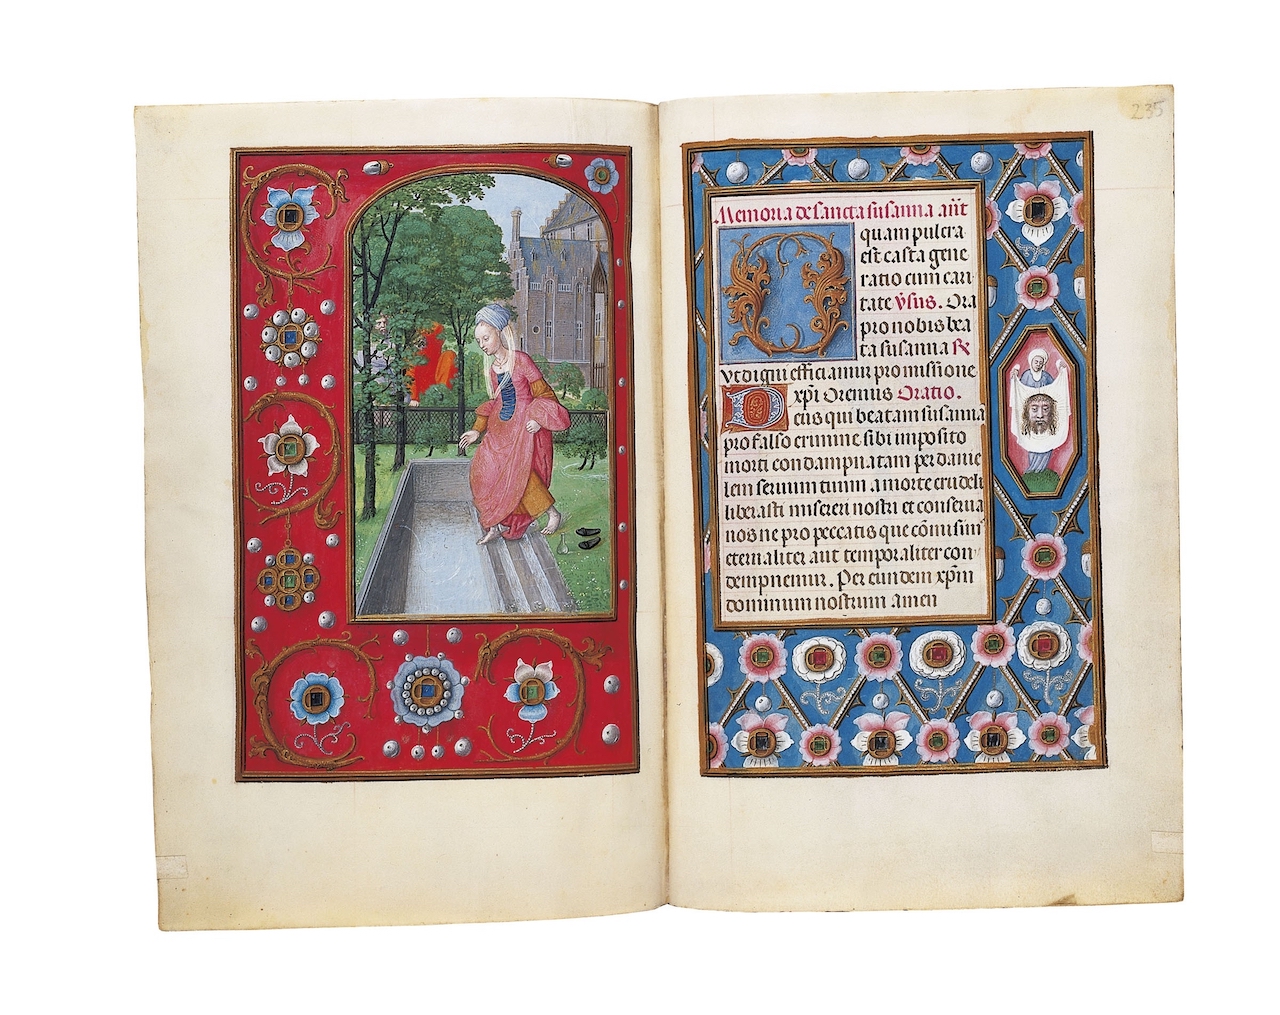 235
Memoria de sancta susanna añt
O quam pulcra
est casta gene
ratio cum cari
tate v̄sus. Ora
pro nobis bea
ta susanna R̷
vt digni efficiamur promissione
xp̄i Oremus Oratio.
Deus qui beatam susanna
pro falso crimine sibi imposito
morti condampnatam per danie
lem seruum tuum a morte crudeli
liberasti miserere nostri et conserua
nos ne pro peccatis que cōmisim
eternaliter aut temporaliter con
dempnemur. Per eundem xp̄m
dominum nostrum amen